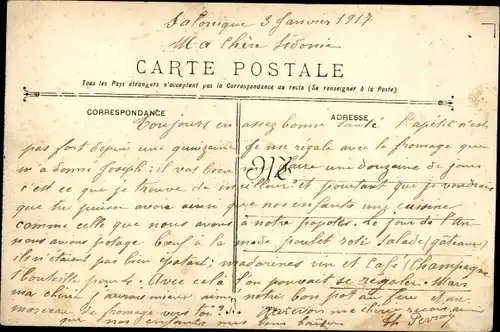 Salonique 3 Janvier 1917
Ma Chère Sidonie
CARTE POSTALE
Tous les Pays étrangers n'acceptent pas la Correspondance au recto (Se renseigner à la Poste)
CORRESPONDANCE
ADRESSE
Toujours en assez bonne santé l'apétit n'est
pas fort depuis une quinzaine je me régale avec le fromage que
m'a donné Joseph: il vas bien faire une douzaine de jours
c'est ce que je trouve de meilleur et pourtant que je voudrais
que tu puisse avoir ainsi que nos enfants une cuisine
comme celle que nous avons à notre popotte. Le jour de l'An
nous avions potage bœuf à la mode poulet roti Salade (gâteaux)
ils n'étaient pas bien épatant; mandarines vin et Café (Champagne
1 bouteille pour 4. Avec celà l'on pouvait se régaler. Mais
ma chérie j'aurais mieux aimé notre bon pot au feu et un
morceau de fromage vers toi
que nos enfants mes bons baisers